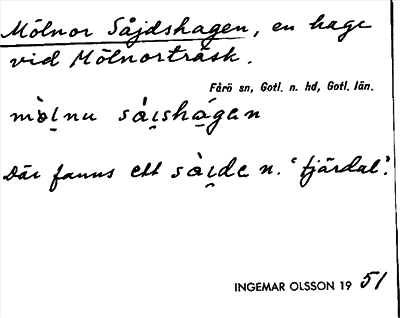 Mölnor Såjdshagen, en hage
vid Mölnorträsk.
Fårö sn, Gotl. n. hd, Gotl. län.
mò̱lnu så̀i̱shá̱gen
Där fanns ett sài̱de n. 'tjärdal'.
INGEMAR OLSSON 19 51